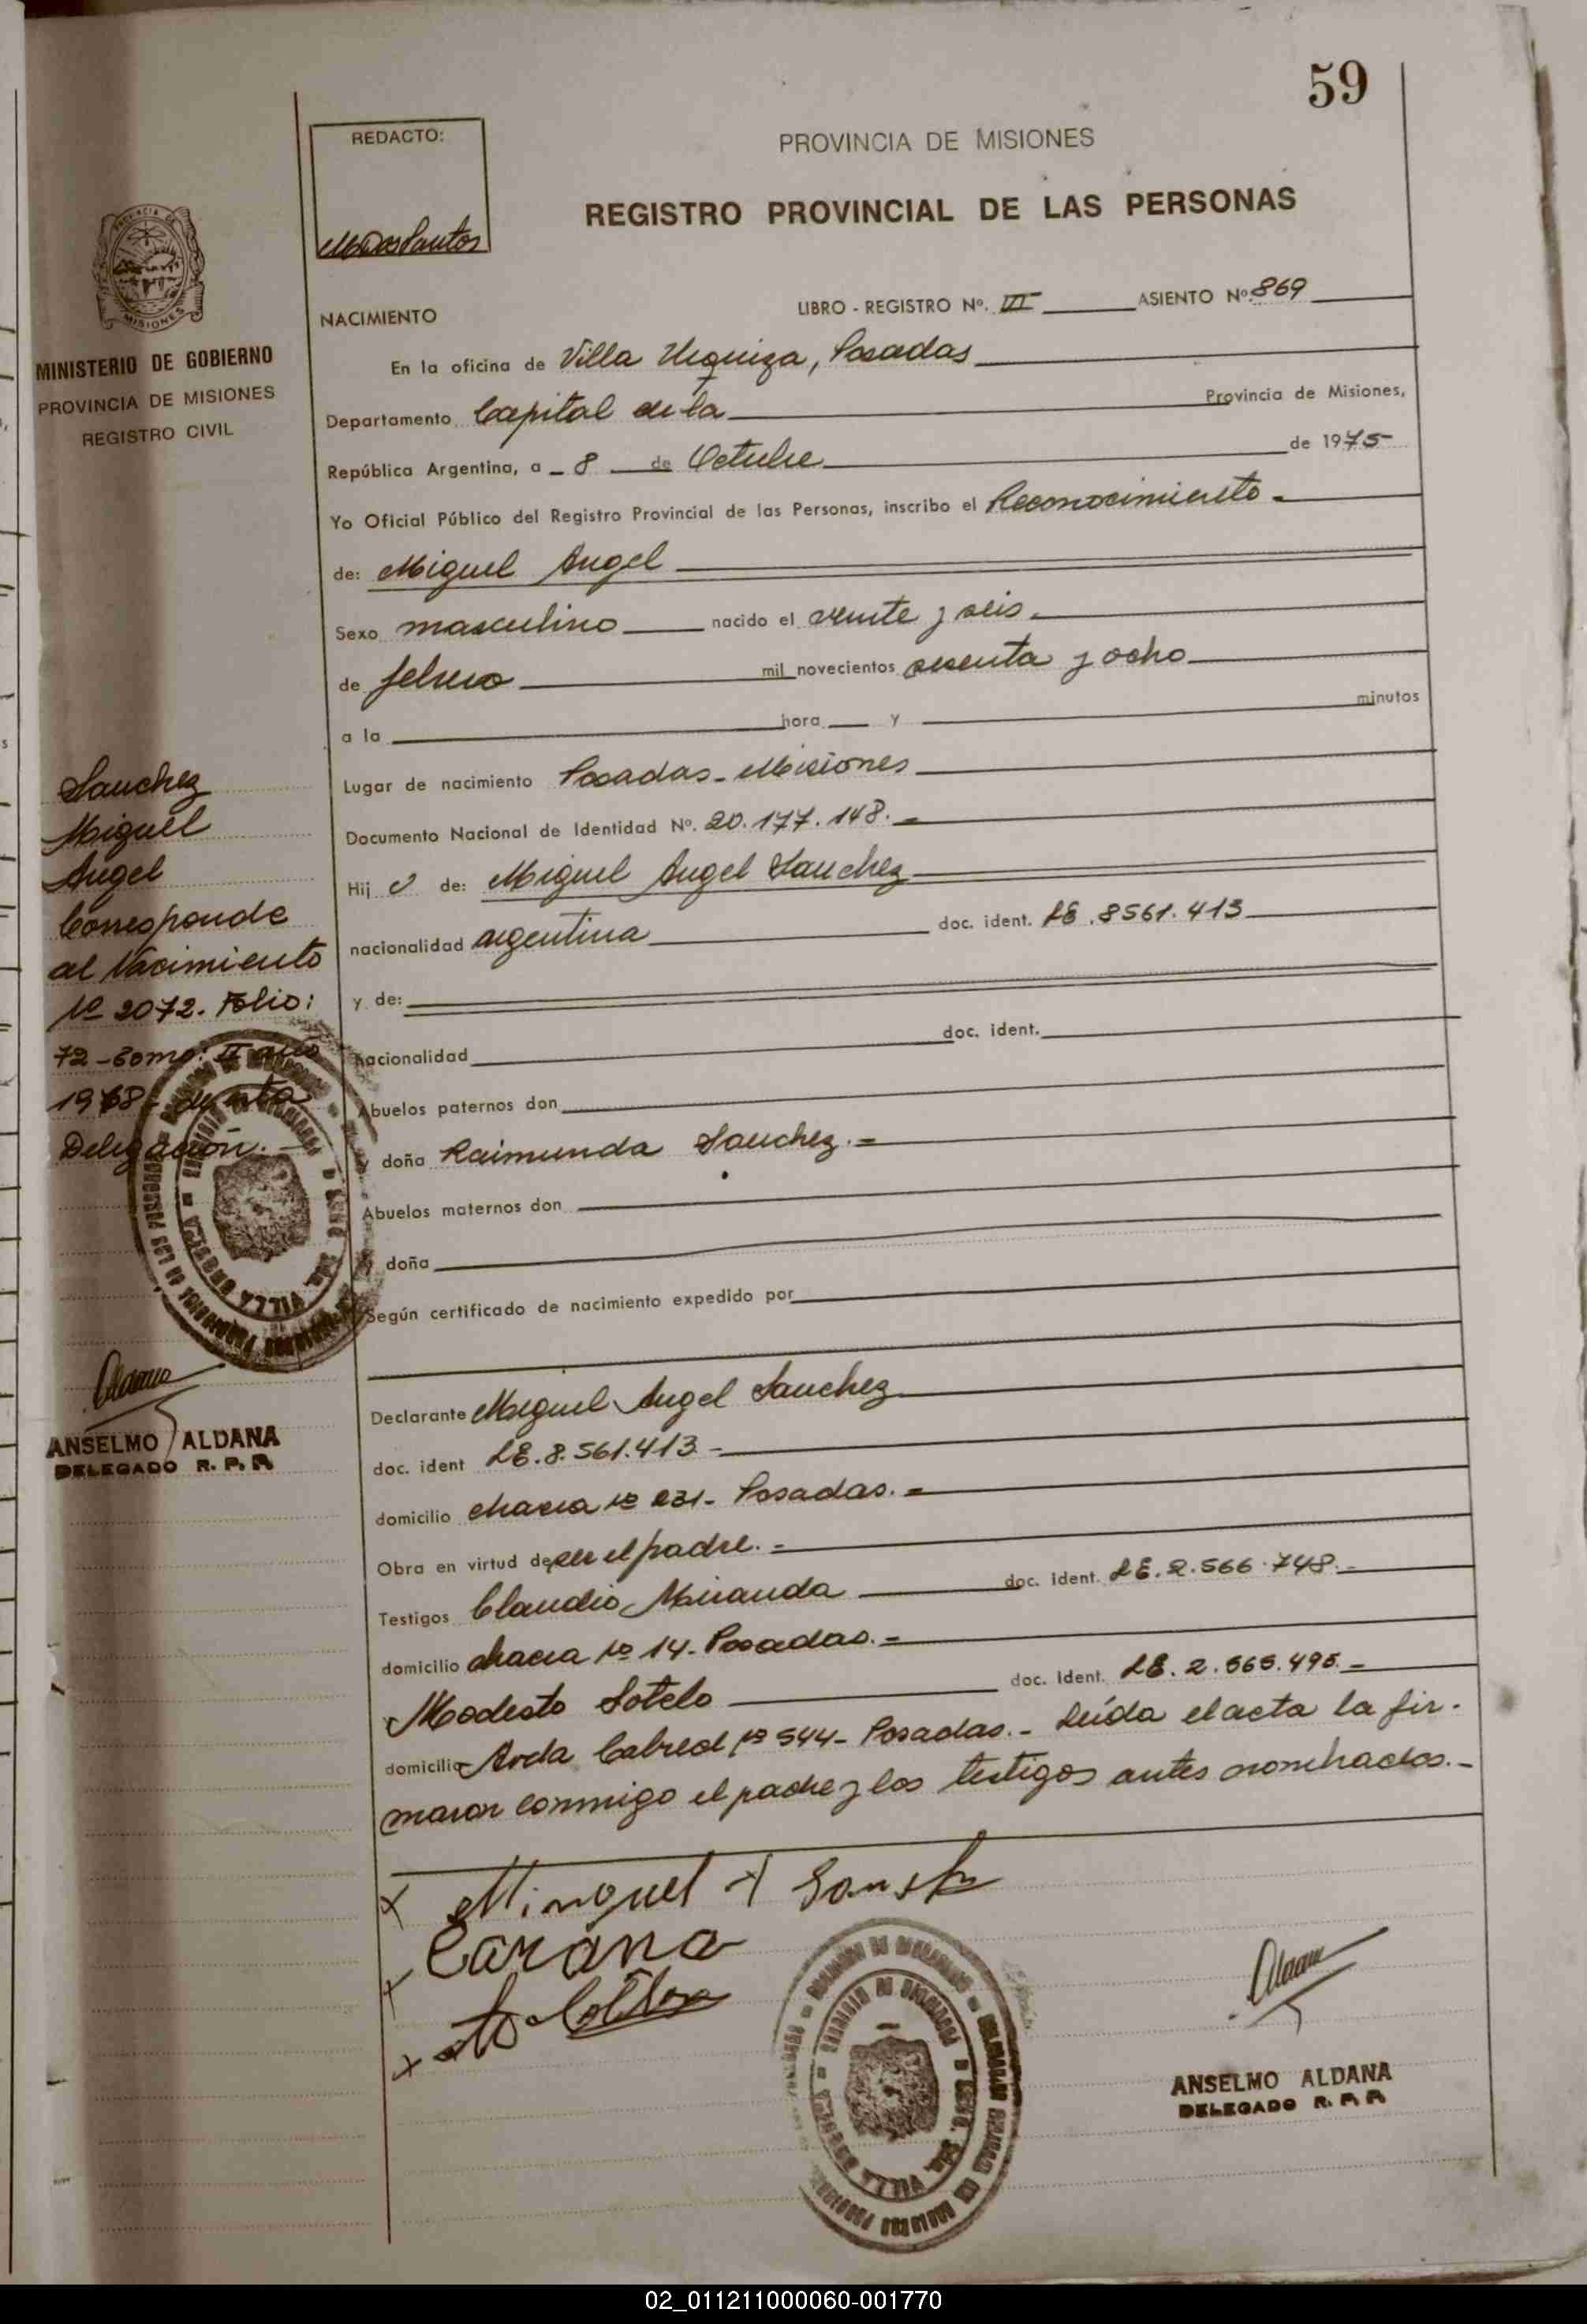 59
REDACTO:
MDosSantos
PROVINCIA DE MISIONES
REGISTRO PROVINCIAL DE LAS PERSONAS
MISIONES
MINISTERIO DE GOBIERNO
PROVINCIA DE MISIONES
REGISTRO CIVIL
NACIMIENTO
LIBRO - REGISTRO Nº. III ASIENTO Nº 869
En la oficina de Villa Urquiza, Posadas
Departamento Capital de la Provincia de Misiones,
República Argentina, a 8 de Octubre de 1975
Yo Oficial Público del Registro Provincial de las Personas, inscribo el Reconocimiento.
de: Miguel Angel
Sexo masculino nacido el veinte y seis.
de febrero mil novecientos sesenta y ocho
a la hora y minutos
Lugar de nacimiento Posadas - Misiones
Documento Nacional de Identidad Nº. 20.177.148.=
Hij o de: Miguel Angel Sanchez
nacionalidad argentina doc. ident. LE. 8561.413
y de:
nacionalidad doc. ident.
Abuelos paternos don
y doña Raimunda Sanchez.=
Abuelos maternos don
y doña
Según certificado de nacimiento expedido por
Declarante Miguel Angel Sanchez
doc. ident LE. 8.561.413 -
domicilio chacra Nº 231- Posadas.=
Obra en virtud de ser el padre.=
Testigos Claudio Miranda doc. ident. LE. 2.566.748.-
domicilio chacra Nº 14- Posadas.=
Modesto Sotelo doc. Ident. LE. 2.565.495.-
domicilio Avda Cabred Nº 544- Posadas.- Leída el acta la fir-
man conmigo el padre y los testigos antes nombrados.-
Sanchez
Miguel
Angel
Corresponde
al Nacimiento
Nº 2072. Folio:
72 - Tomo: II año
1968 - de esta
Delegación.-
VILLA URQUIZA
ANSELMO ALDANA
DELEGADO R. P. P.
VILLA URQUIZA
ANSELMO ALDANA
DELEGADO R. P. P.
02_011211000060-001770